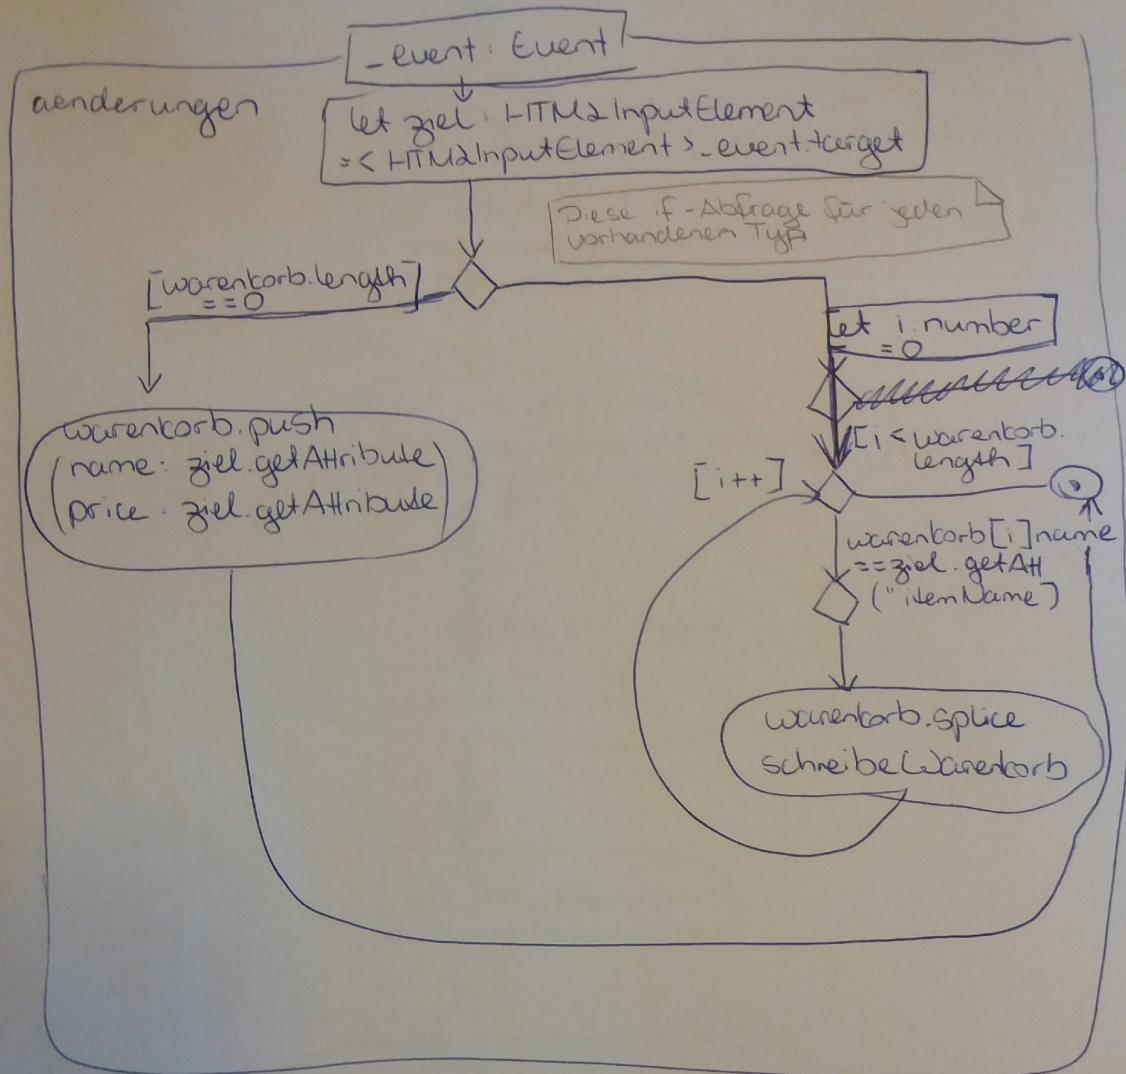 _event: Event
aenderungen
let ziel: HTMLInputElement
=<HTMLInputElement>_event.target
Diese if-Abfrage für jeden
vorhandenen Typ
[warenkorb.length]
==0
let i: number
=0
warenkorb.push
(name: ziel.getAttribute)
(price: ziel.getAttribute)
[i<warenkorb.
length]
[i++]
warenkorb[i]name
==ziel.getAtt
("itemName)
warenkorb.splice
schreibeWarenkorb